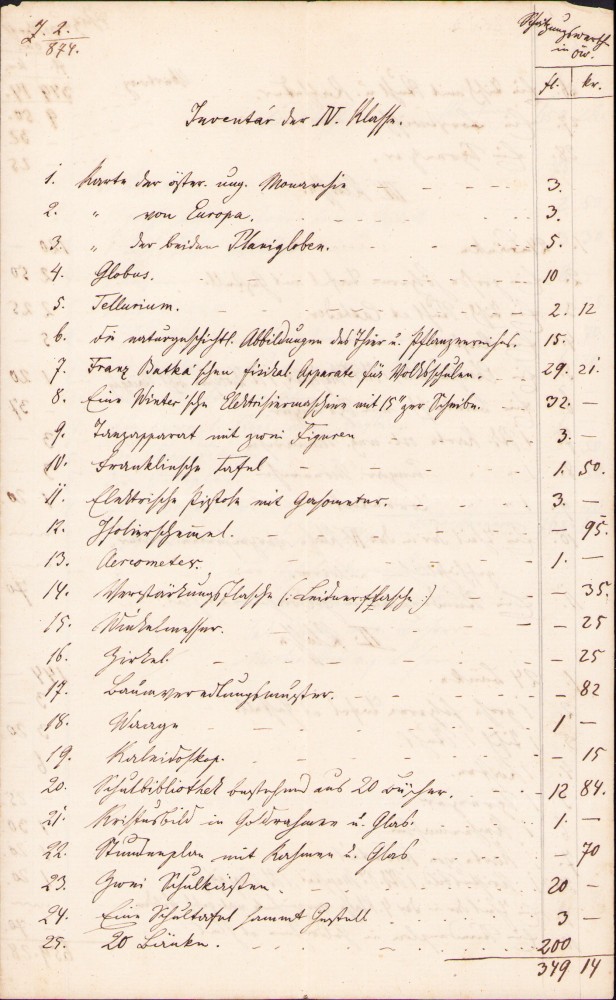 Z. 2.
874.
Schätzungswerth
in öw.
fl. kr.
Inventar der IV. Klasse.
1. Karte der öster. ung. Monarchie - - - 3.
2. " von Europa. - - - 3.
3. " der beiden Planigloben. 5.
4. Globus. 10
5. Tellurium. 2. 12
6. die naturgeschichtl. Abbildungen des Thier u. Pflanzenreiches. 15.
7. Franz Batka'schen fisikal. Apparate für Volksschulen. 29. 21.
8. Eine Winter'sche Elektrisiermaschine mit 15"ger Scheibe. 32. —
9. Tanzapparat mit zwei Figuren 3. —
10. Franklinsche Tafel 1. 50.
11. Elektrische Pistole mit Gasometer. 3. —
12. Isolierschemmel. — 95.
13. Aereometer. 1. —
14. Verstärkungsflasche (: Leidnerflasche :) — 35.
15. Winkelmesser. — 25
16. Zirkel. — 25
17. Baumveredlungsmuster. — 82
18. Waage 1 —
19. Kaleidoskop. — 15
20. Schulbibliothek bestehend aus 20 Bücher. 12 84.
21. Kristusbild in Goldrahmen u. Glas. 1. —
22. Stundenplan mit Rahmen u. Glas — 70
23. Zwei Schulkästen. 20 —
24. Eine Schultafel sammt Gestell 3 —
25. 20 Bänke. 200
349 14